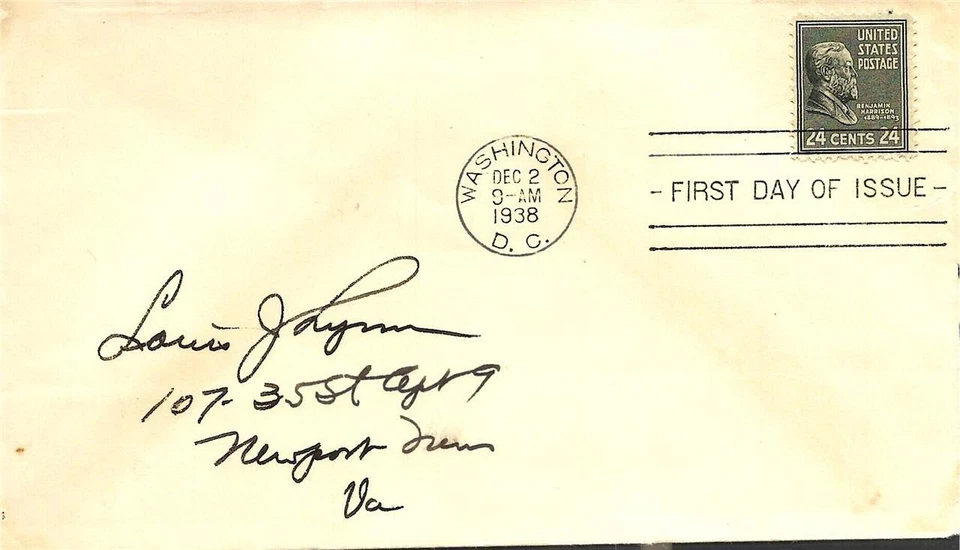 UNITED
STATES
POSTAGE
BENJAMIN
HARRISON
1889-1893
24 CENTS 24
WASHINGTON
DEC 2
9-AM
1938
D. C.
- FIRST DAY OF ISSUE -
Louis J Lynn
107- 35 St Apt 9
Newport News
Va